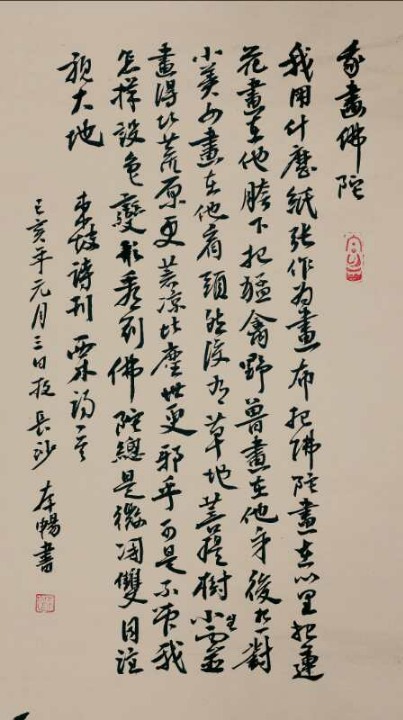 我畫佛陀
我用什麽紙張作为畫布把佛陀畫在心里把蓮
花畫在他胯下把猛禽野兽畫在他身後把一對
小美女畫在他肩頭然後为草地菩提樹小雪
畫得比荒原更荒凉比塵世更邪乎可是不管我
怎样設色變形看到佛陀總是微闭雙目注
視大地
東坡詩刊 栗 詩一首
己亥年元月三日於長沙 李暢書